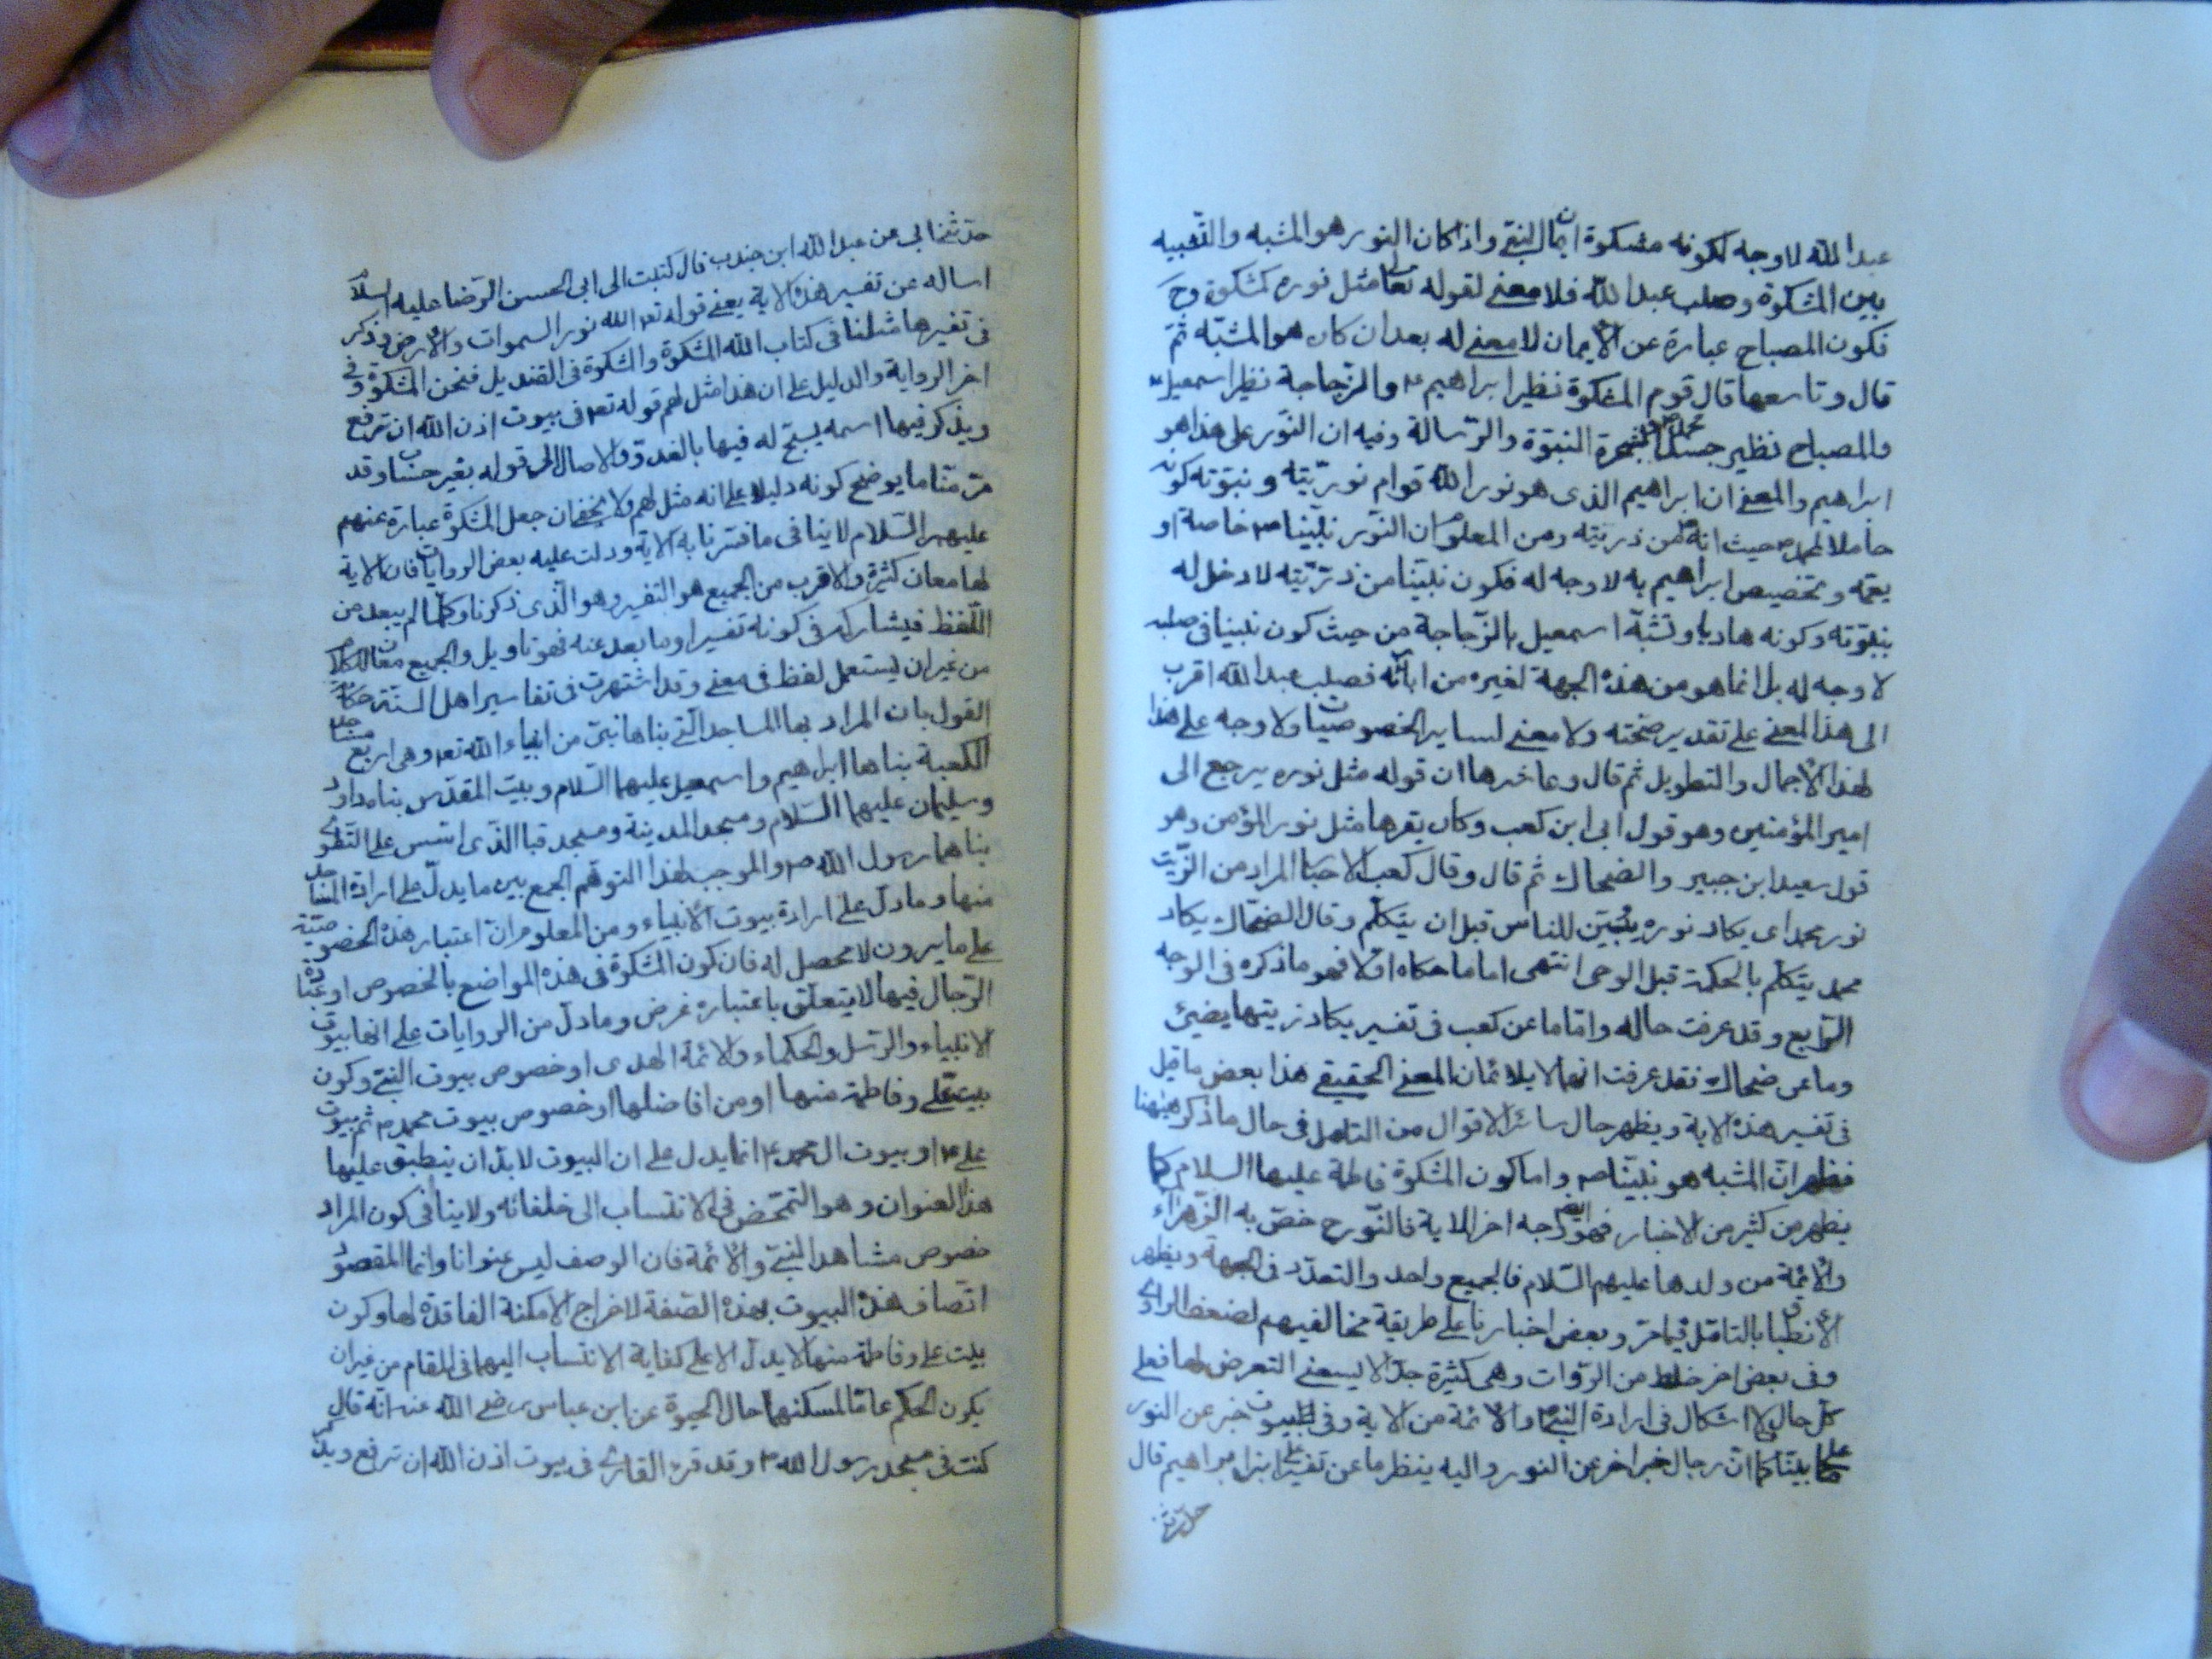 عبد الله لا وجه لكونه مشكوة ايمان النبي واذا كان النور هو المشبه والتشبيه
بين المشكوة وصلب عبد الله فلا معنى لقوله تعالى مثل نوره كمشكوة وح
فكون المصباح عبارة عن الايمان لا معنى له بعد ان كان هو المشبه ثم
قال وتاسعها قال قوم المشكوة نظير ابراهيم ع والزجاجة نظير اسمعيل ع
والمصباح نظير جسد محمد ص والشجرة النبوة والرسالة وفيه ان النور على هذا هو
ابراهيم والمعنى ان ابراهيم الذى هو نور الله قوام نوريته ونبوته كونه
حاملا لمحمد ص حيث انه من ذريته ومن المعلوم ان النور نبينا ص خاصة او
يعمه وتخصيص ابراهيم به لا وجه له فكون نبينا من ذريته لا دخل له
بنبوته وكونه هاديا وتشبه اسمعيل بالزجاجة من حيث كون نبينا فى صلبه
لا وجه له بل انما هو من هذه الجهة لغيره من ابائه فصلب عبد الله اقرب
الى هذا المعنى على تقدير صحته ولا معنى لساير الخصوصيات ولا وجه على هذا
لهذا الاجمال والتطويل ثم قال وعاشرها ان قوله مثل نوره يرجع الى
امير المؤمنين وهو قول ابى ابن كعب وكان يقرها مثل نور المؤمن وهو
قول سعيد ابن جبير والضحاك ثم قال وقال كعب الاحبار المراد من الزيت
نور محمد اى يكاد نوره يبين للناس قبل ان يتكلم وقال الضحاك يكاد
محمد يتكلم بالحكمة قبل الوحى انتهى اما ما حكاه اولا فهو ما ذكره فى الوجه
الرابع وقد عرفت حاله واما ما عن كعب فى تفسير يكاد زيتها يضيئ
وما عن ضحاك فقد عرفت انهما لا يلائمان المعنى الحقيقى هذا بعض ما قيل
فى تفسير هذه الاية ويظهر حال سائر الاقوال من التامل فى حال ما ذكر هيهنا
فظهر ان المشبه هو نبينا ص واما كون المشكوة فاطمة عليها السلام كما
يظهر من كثير من الاخبار فهو ايضا وجه اخر للاية فالنور ح خص به الزهراء
والائمة من ولدها عليهم السلام فالجميع واحد والتعدد فى الجهة ويظهر
الانطباق بالتامل فيما مر وبعض اخبارنا على طريقة مخالفيهم لضعف الراوى
وفى بعض اخر خلط من الروات وهى كثيرة جدا لا يسعنى التعرض لها فعلى
كل حال لا اشكال فى ارادة النبى ص والائمة من الاية وفى البيوت خبر عن النور
بيتا كما ان رجال خبر اخر عن النور واليه ينظر ما عن تفسير على ابن ابراهيم قال
حدثنى
حدثنى ابى عن عبد الله ابن جندب قال كتبت الى ابى الحسن الرضا عليه السلام
اساله عن تفسير هذه الاية يعنى قوله تعه الله نور السموات والارض فذكر
فى تفسيرها مثلنا فى كتاب الله المشكوة والمشكوة فى القنديل فنحن المشكوة وفى
اخر الرواية والدليل على ان هذا مثل لهم قوله تعه فى بيوت اذن الله ان ترفع
ويذكر فيها اسمه يسبح له فيها بالغدو والاصال الى قوله بغير حساب وقد
مر منا ما يوضح كونه دليلا على انه مثل لهم ولا يخفى ان جعل المشكوة عبارة عنهم
عليهم السلام لا ينافى ما فسرنا به الاية ودلت عليه بعض الروايات فان الاية
لها معان كثيرة والاقرب من الجميع هو التفسير وهو الذى ذكرنا وكلما لم يبعد من
اللفظ فيشاركه فى كونه تفسيرا وما بعد عنه فهو تاويل والجميع معان للكلام
من غير ان يستعمل لفظ فى معنى وقد اشتهرت فى تفاسير اهل السنة حكاية
القول بان المراد بها المساجد التى بناها نبى من انبياء الله تعه وهى اربع مساجد
الكعبة بناها ابراهيم واسمعيل عليهما السلام وبيت المقدس بناه داود
وسليمان عليهما السلام ومسجد المدينة ومسجد قبا الذى اسس على التقوى
بناهما رسول الله ص والموجب لهذا التوهم الجمع بين ما يدل على ارادة المساجد
منها وما دل على ارادة بيوت الانبياء ومن المعلوم ان اعتبار هذه الخصوصية
على ما يرون لا محصل له فان كون المشكوة فى هذه المواضع بالخصوص او عبادة
الرجال فيها لا يتعلق باعتباره غرض وما دل من الروايات على انها بيوت
الانبياء والرسل والحكماء والائمة الهدى او خصوص بيوت النبى وكون
بيت على وفاطمة منها او من افاضلها او خصوص بيوت محمد ص ثم بيوت
على ع او بيوت ال محمد ع انما يدل على ان البيوت لا بد ان ينطبق عليها
هذا العنوان وهو التمحض فى الانتساب الى خلفائه ولا ينافى كون المراد
خصوص مشاهد النبى والائمة فان الوصف ليس عنوانا وانما المقصود
اتصاف هذه البيوت بهذه الصفة لاخراج الامكنة الفاقدة لها وكون
بيت على وفاطمة منها لا يدل الا على كفاية الانتساب اليهما فى المقام من غير ان
يكون الحكم عاما لمسكنهما حال الحيوة عن ابن عباس رضى الله عنه انه قال
كنت فى مسجد رسول الله ص وقد قرء القارى فى بيوت اذن الله ان ترفع ويذكر